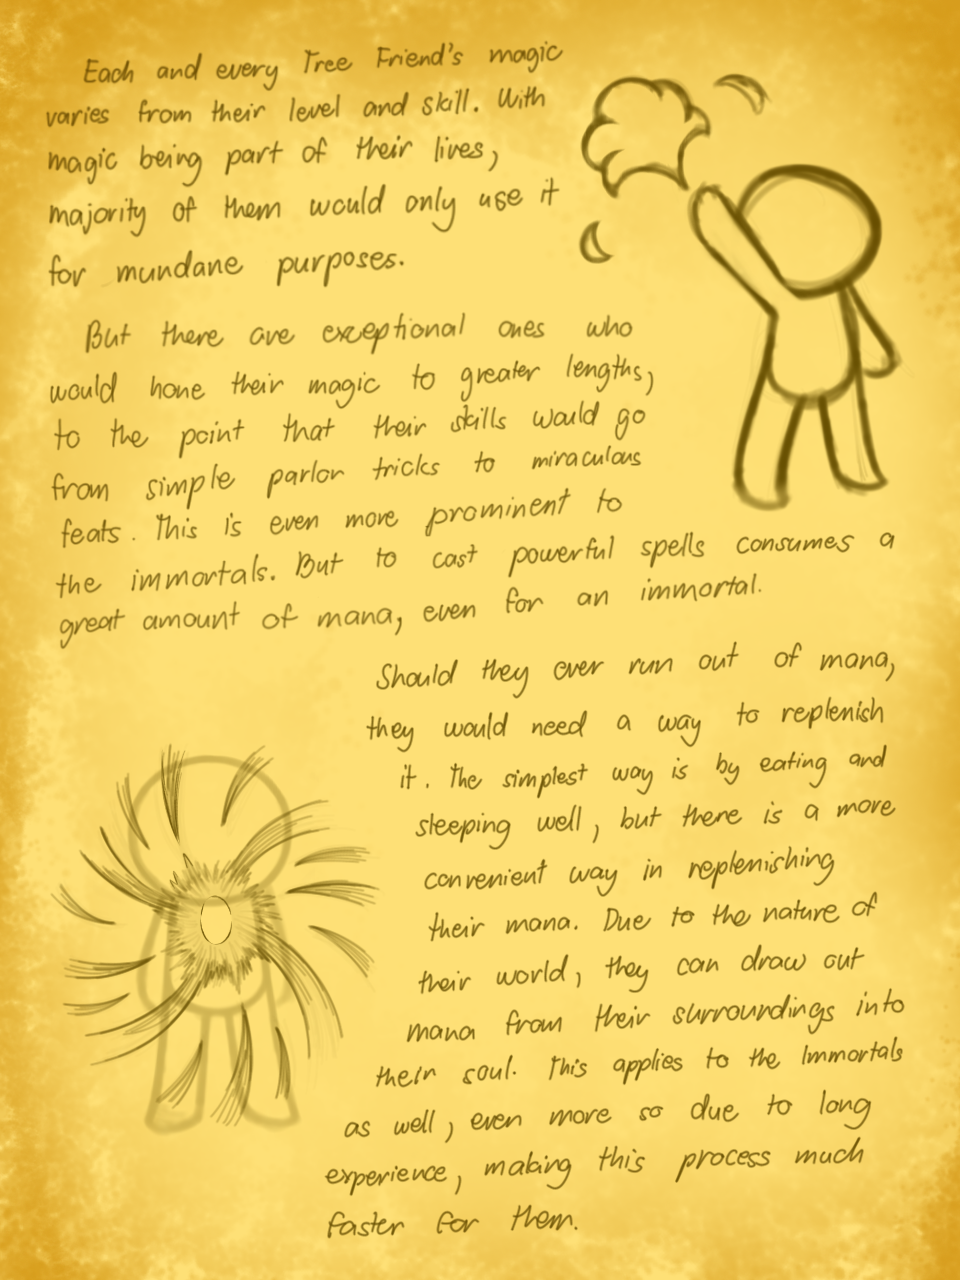 Each and every Tree Friend's magic
varies from their level and skill. With
magic being part of their lives,
majority of them would only use it
for mundane purposes.
But there are exceptional ones who
would hone their magic to greater lengths,
to the point that their skills would go
from simple parlor tricks to miraculous
feats. This is even more prominent to
the immortals. But to cast powerful spells consumes a
great amount of mana, even for an immortal.
Should they ever run out of mana,
they would need a way to replenish
it. The simplest way is by eating and
sleeping well, but there is a more
convenient way in replenishing
their mana. Due to the nature of
their world, they can draw out
mana from their surroundings into
their soul. This applies to the Immortals
as well, even more so due to long
experience, making this process much
faster for them.